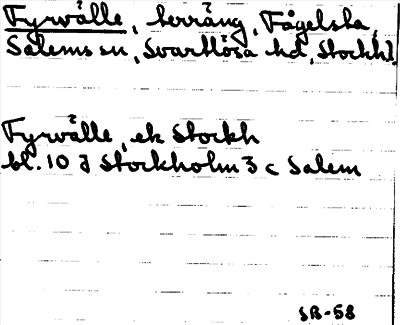 Fyrvålle, terräng, Fågelsta,
Salems sn, Svartlösa hd, Stockh l.
Fyrvålle, ek Stockh
bl. 10 I Stockholm 3 c Salem
SB-58